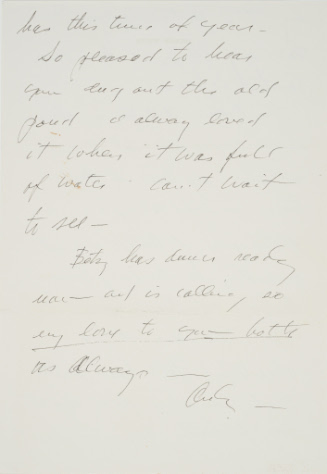 has this time of year.
So pleased to hear
you dug out the old
pond I always loved
it when it was full
of water can't wait
to see —
Betsy has dinner ready
now — and is calling, so
my love to you both
as always —